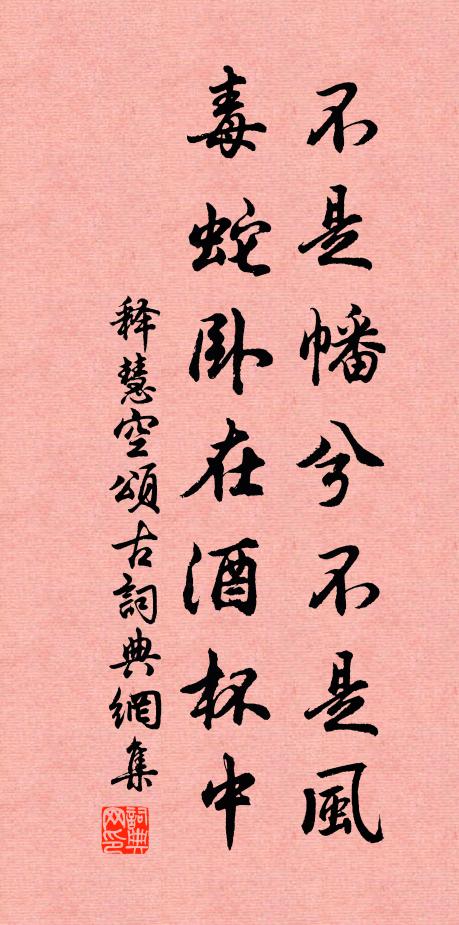 不是幡兮不是風
毒蛇卧在酒杯中
釋慧空頌古詞典網集
詞典
网印